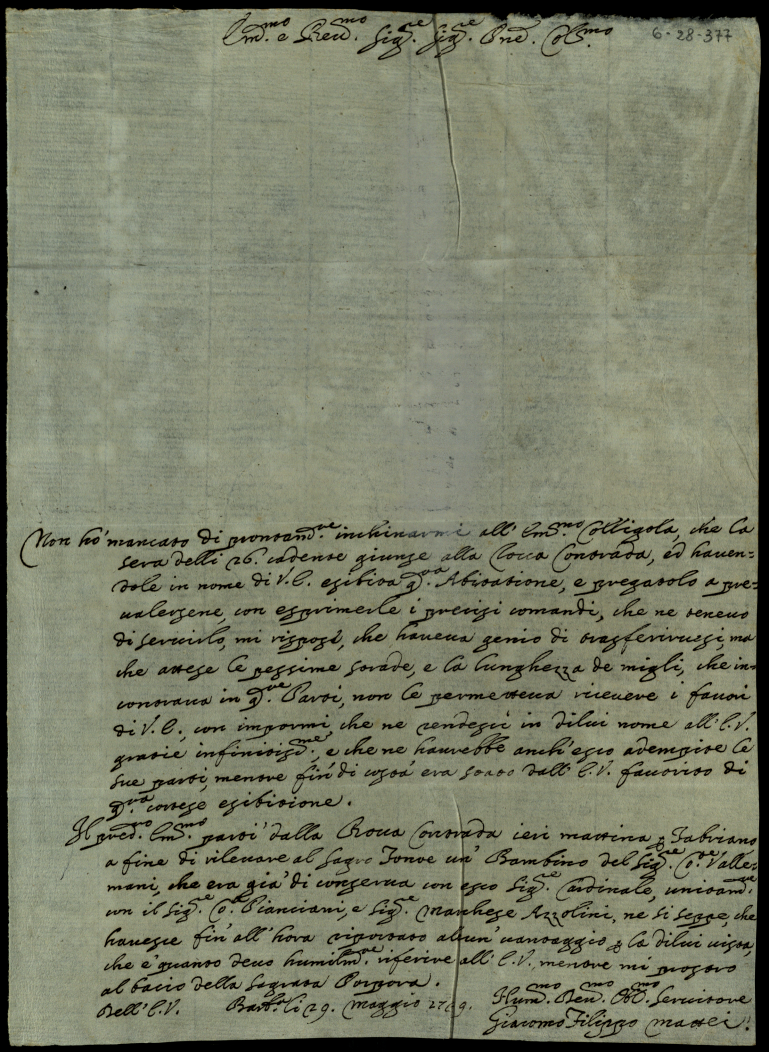 Em.mo e Reu.mo Sig.re Sig.re Pne. Col.mo
6-28-377
Non hò mancato di prontam.te inchinarmi all' Em.mo Colligola, che la
sera delli 26. cadente giunse alla Rocca Contrada, ed hauen=
dole in nome di V.E. esibita q.ta Abitatione, e pregatolo a pre=
ualersene, con esprimerle i precisi comandi, che ne teneuo
di seruirlo, mi rispose, che haueua genio di trasferiruesi, ma
che attese le pessime strade, e la lunghezza de migli, che in=
contraua in q.te Parti, non le permetteua riceuere i fauori
di V.E., con impormi, che ne rendessi in di lui nome all' E.V.
gratie infinitiss.me, e che ne haurebbe anch' esso adempite le
sue parti, mentre fin' di costà era stato dall' E.V. fauorito di
q.ta cortese esibitione.
Il pred.to Em.mo partì dalla Rocca Contrada ieri mattina p Fabriano
a fine di rileuare al Sagro Fonte un' Bambino del Sig.re C.te Valle=
mani, che era già di conserua con esso Sig.re Cardinale, unitam.te
con il Sig.re C.te Pianciani, e Sig.re Marchese Azzolini, ne si seppe, che
hauesse fin' all' hora riportato alcun' uantaggio p la di lui uista,
che è quanto deuo humilm.te riferire all' E.V., mentre mi prostro
al bacio della Sagrata Porpora.
Dell' E.V. Barb.ra li 29. Maggio
Hum.mo Deu.mo Obl.mo Seruitore
Giacomo Filippo Mattei